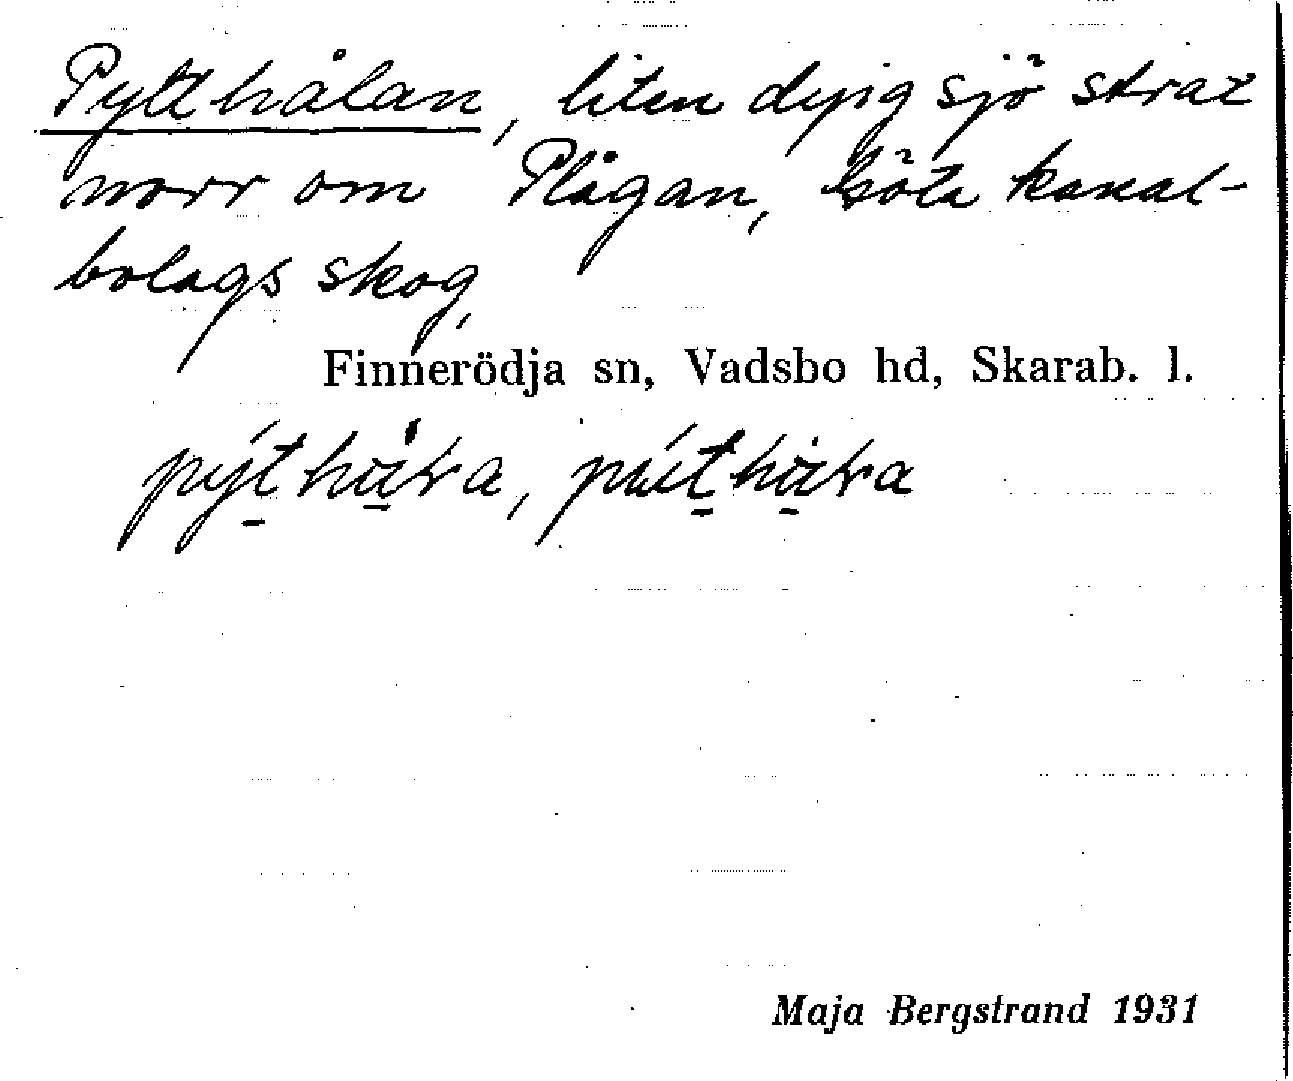 Pytthålan, liten dyig sjö strax
norr om Plågan, Göta kanal-
bolags skog,
Finnerödja sn, Vadsbo hd, Skarab. l.
Maja Bergstrand 1931